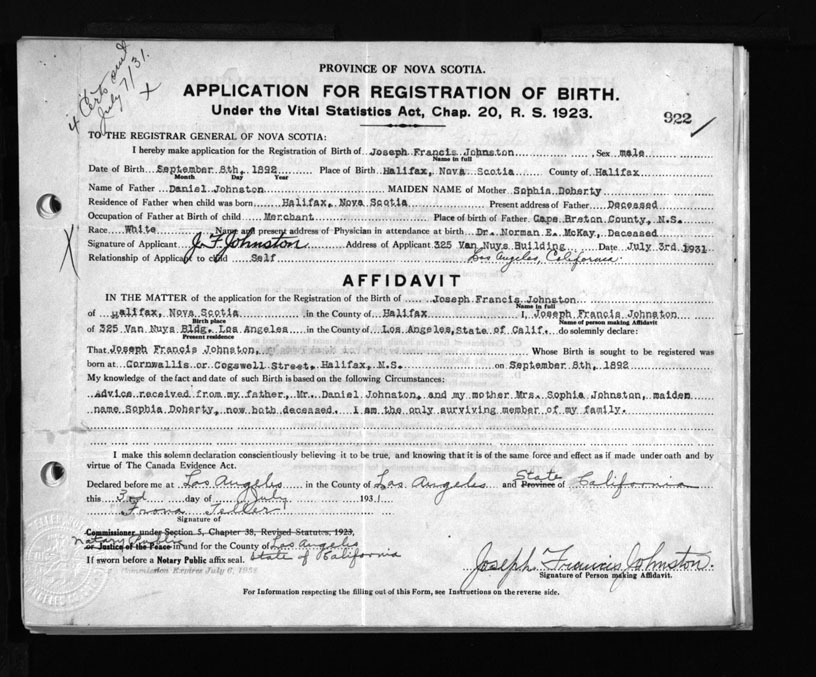 4 Certs out
July 7/31.
x
PROVINCE OF NOVA SCOTIA.
APPLICATION FOR REGISTRATION OF BIRTH.
Under the Vital Statistics Act, Chap. 20, R. S. 1923.
922
TO THE REGISTRAR GENERAL OF NOVA SCOTIA:
I hereby make application for the Registration of Birth of Joseph Francis Johnston, Sex male
Name in full
Date of Birth September 8th, 1892 Place of Birth Halifax, Nova Scotia County of Halifax
Month Day Year
Name of Father Daniel Johnston MAIDEN NAME of Mother Sophia Doherty
Residence of Father when child was born Halifax, Nova Scotia Present address of Father Deceased
Occupation of Father at Birth of child Merchant Place of birth of Father Cape Breton County, N.S.
Race White Name and present address of Physician in attendance at birth Dr. Norman E. McKay, Deceased
Signature of Applicant J. F. Johnston Address of Applicant 325 Van Nuys Building Date July 3rd 1931
Relationship of Applicant to child Self Los Angeles, California.
X
AFFIDAVIT
IN THE MATTER of the application for the Registration of the Birth of Joseph Francis Johnston
Name in full
of Halifax, Nova Scotia in the County of Halifax I, Joseph Francis Johnston
Birth place Name of person making Affidavit
of 325 Van Nuys Bldg. Los Angeles in the County of Los Angeles, State of Calif. do solemnly declare:
Present residence
That Joseph Francis Johnston, Whose Birth is sought to be registered was
born at Cornwallis or Cogswell Street, Halifax, N.S. on September 8th, 1892
My knowledge of the fact and date of such Birth is based on the following Circumstances:
Advice received from my father, Mr. Daniel Johnston, and my mother Mrs. Sophia Johnston, maiden
name Sophia Doherty, now both deceased. I am the only surviving member of my family.
I make this solemn declaration conscientiously believing it to be true, and knowing that it is of the same force and effect as if made under oath and by
virtue of The Canada Evidence Act.
Declared before me at Los Angeles in the County of Los Angeles and State Province of California
this 3rd day of July 1931
Frona Teller
Signature of
Commissioner under Section 5, Chapter 38, Revised Statutes, 1923,
Notary Public
or Justice of the Peace in and for the County of Los Angeles
If sworn before a Notary Public affix seal. State of California
Commission Expires July 6, 1932
Joseph Francis Johnston.
Signature of Person making Affidavit.
For Information respecting the filling out of this Form, see Instructions on the reverse side.